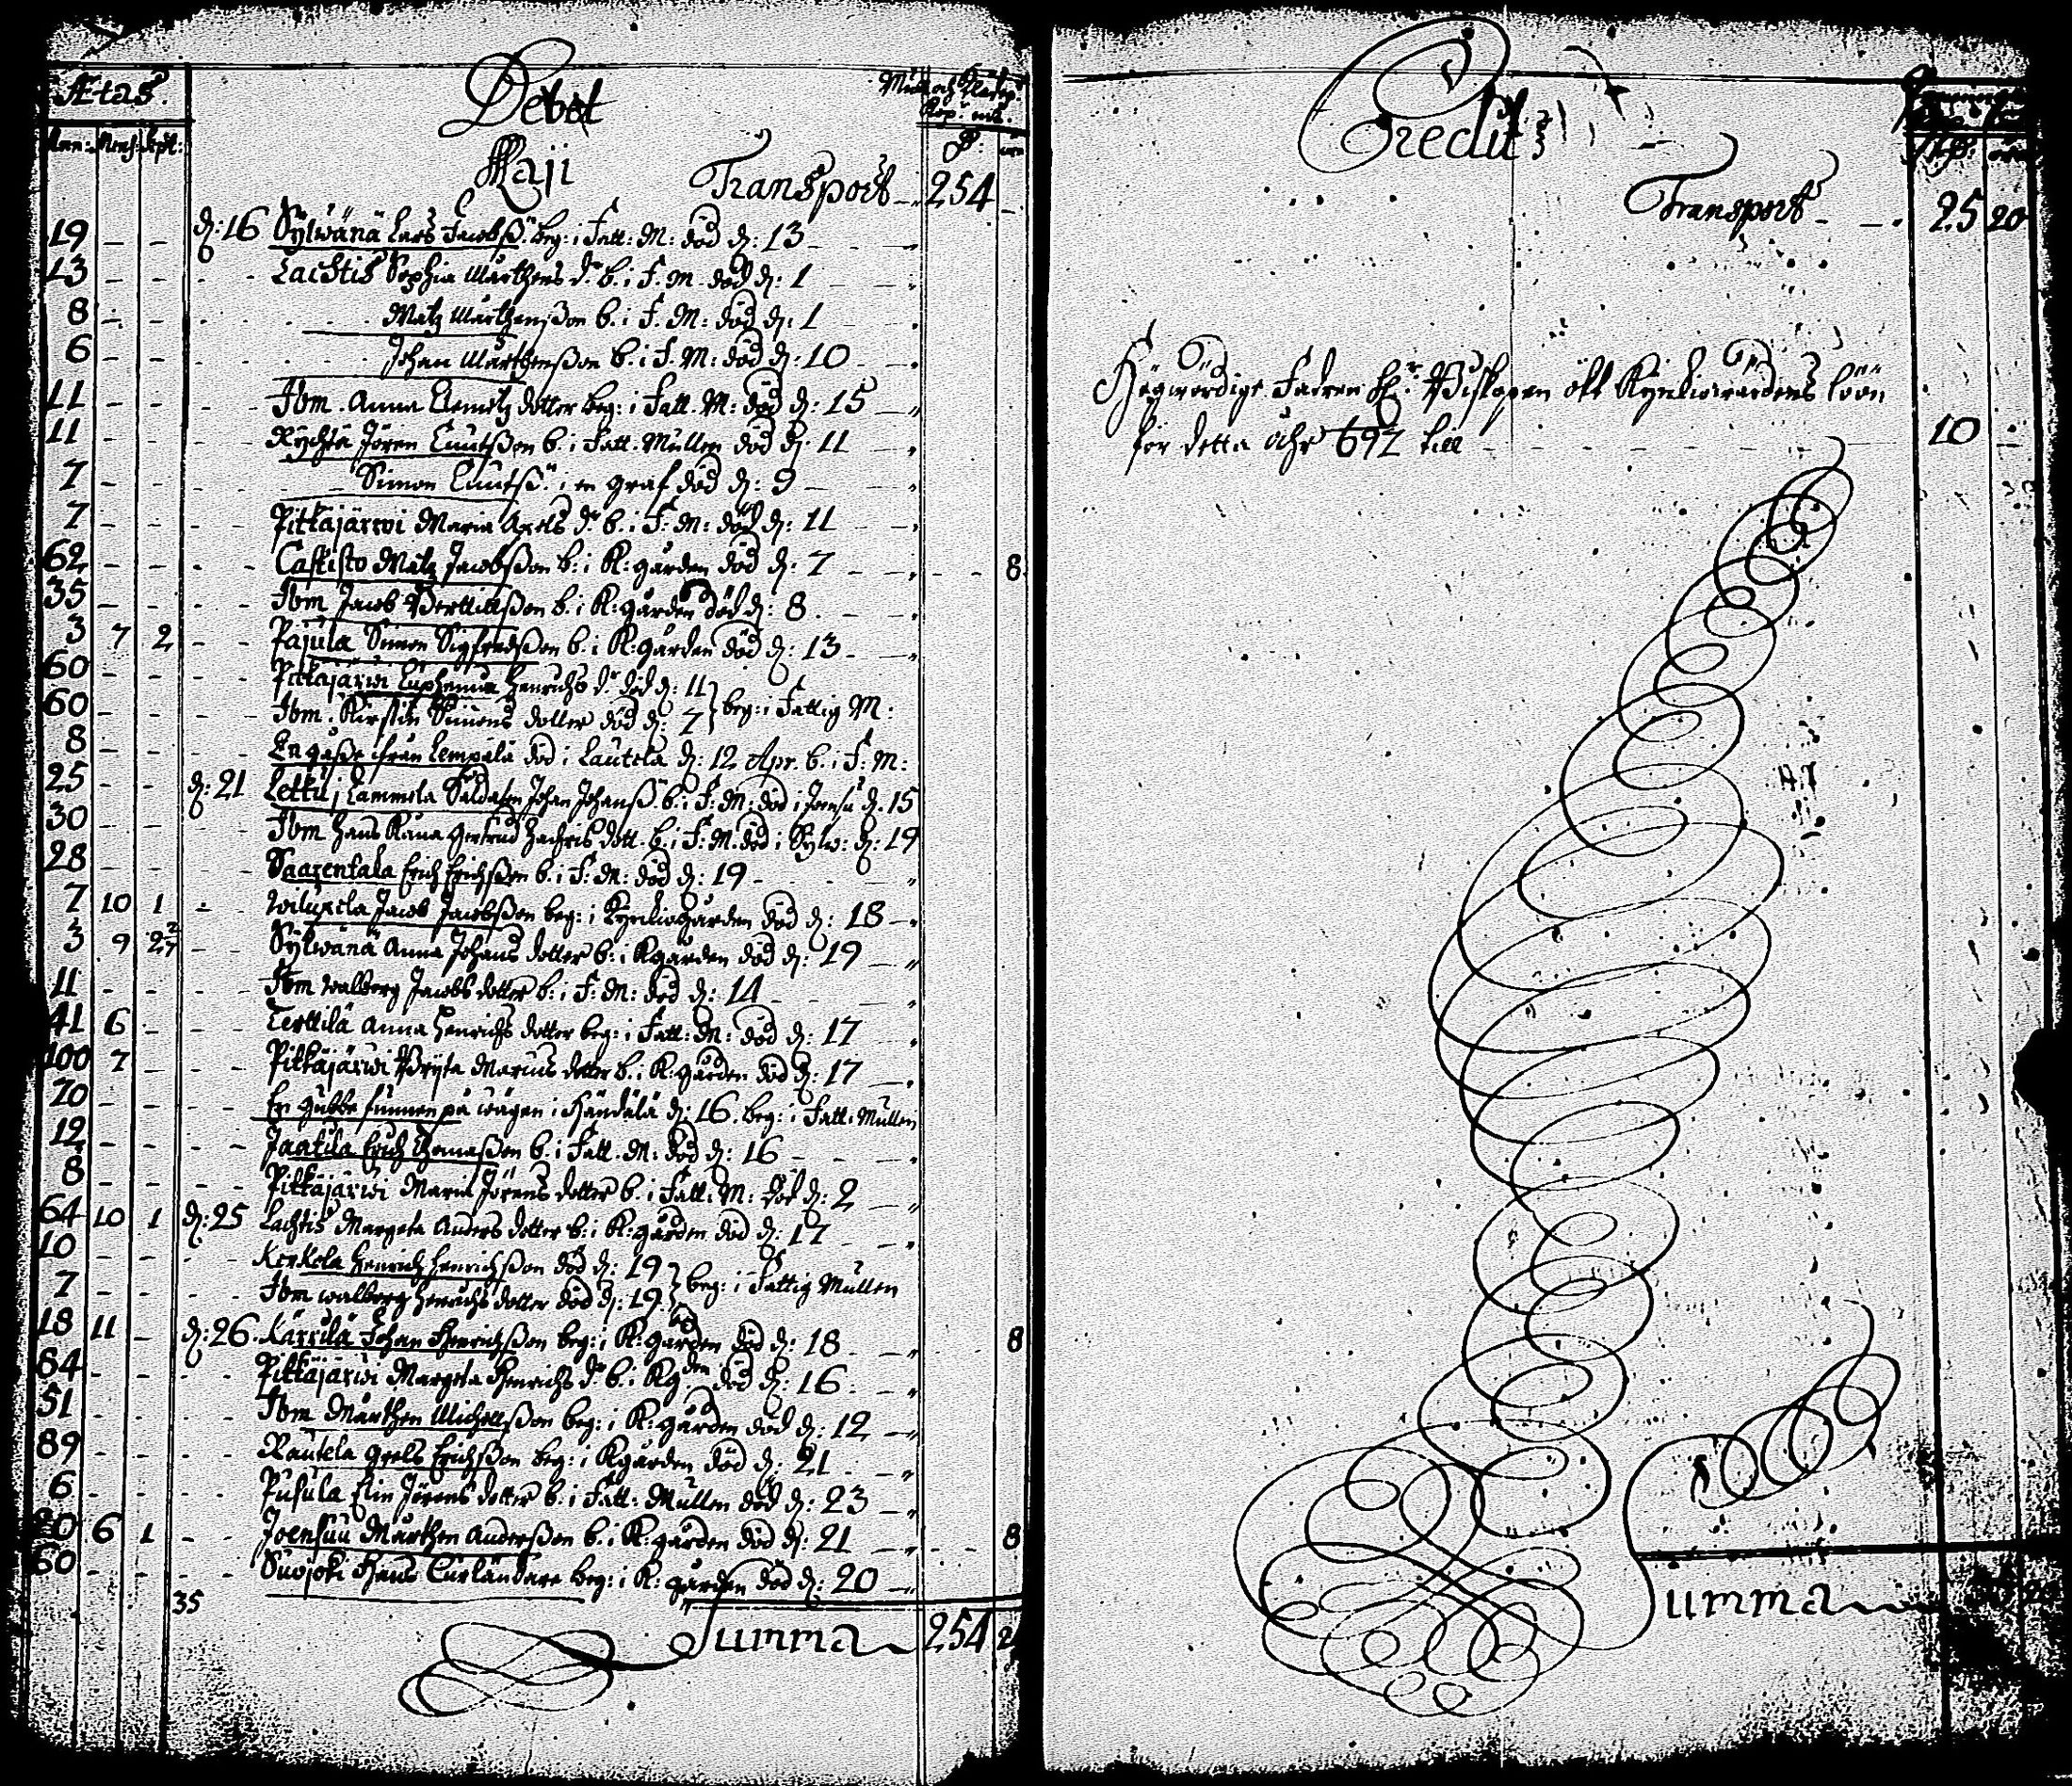 Ætas.
Debet
Ann: Mens: Sept:
Maji
Transport 254
19 d: 16 Sylwänä Lars Jacobß: beg: i Fatt: M: död d: 13
13 Lachtis Sophia Mårthens d:r b. i F. M. död d: 1
8 Matz Mårthenßon b. i F. M: död d: 1
6 Johan Mårthenßon b. i F. M: död d: 10
11 Ibm. Anna Clemetz dotter beg: i Fatt. M: död d: 15
11 Rychtä Jören Cnutßon b. i Fatt. Mullen död d: 11
7 Simon Cnutß: i en graf död d: 9
7 Pitkäjärwi Maria Axels d:r b. i F: M: död d: 11
62 Castisto Matz Jacobßon b: i K: gården död d: 7 8
35 Ibm Jacob Bertillßon b. i K: gården död d: 8
3 7 2 Pajula Simon Sigfredßon b. i K: gården död d: 13
60 Pitkäjärwi Euphemia Henrichs d:r död d: 11
60 Ibm. Kirstin Simons dotter död d: 7 beg: i Fattig M:
8 En gåße ifrån Lempälä död i Lautela d: 12 Apr. b. i F: M:
25 d: 21 Lettu j Lammela Saldaten Johan Johanß: b. i F: M: död i Joensu d. 15
30 Ibm Hans Kana Gertrud Zachris dott. b. i F: M. död i Sylw: d: 19
28 Saarentaka Erich Erichßon b. i F: M: död d: 19
7 10 1 Wilupela Jacob Jacobßon beg: i Kyrkiogården död d: 18
3 9 2 Sylwänä Anna Johans dotter b: i Kgården död d: 19
11 Ibm Walborg Jacobs dotter b: i F: M: död d: 14
41 6 Terttilä Anna Henrichs dotter beg: i Fatt: M: död d: 17
100 7 Pitkäjärwi Bryta Marcus dotter b. i K: gården död d: 17
70 En gubbe funnen på wägen i Händälä d: 16. beg: i Fatt: Mullen
12 Jaatila Erich Thomaßon b. i Fatt. M: död d: 16
8 Pitkäjärwi Maria Jörens dotter b. i Fatt: M: död d: 2
64 10 1 d: 25 Lachtis Margeta Anders dotter b: i K: gården död d: 17
10 Kerkola Henrich Henrichßon död d: 19
7 Ibm Walborg Henrichs dotter död d: 19 beg: i Fattig Mullen
18 11 d: 26. Kärrilä Johan Henrichßon beg: i K: gården död d: 18 8
64 Pitkäjärwi Margeta Henrichs d:r b. i Kgden död d: 16
51 Ibm Mårthen Michellßon beg: i K: gården död d: 12
89 Rautela Grels Erichßon beg: i Kgården död d: 21
6 Puhula Elin Jörens dotter b. i Fatt: Mullen död d: 23
6 1 Joensuu Mårthen Anderßon b. i K: gården död d: 21 8
60 Suojoki Hans Curländare beg: i K: gården död d: 20
35
Summa 254
Credit
Transport 25 20
Högwördige Fadren H:r Biskopen
för detta åhr 692 till 10
Summa